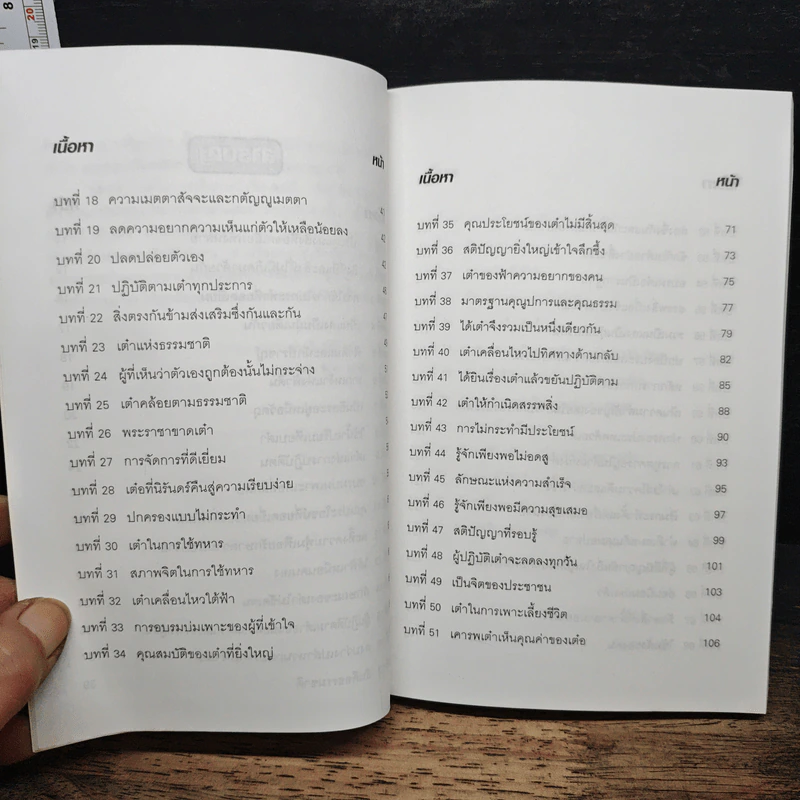 8
20
19
เนื้อหา
หน้า
บทที่ 18 ความเมตตาสัจจะและกตัญญูเมตตา
บทที่ 19 ลดความอยากความเห็นแก่ตัวให้เหลือน้อยลง
บทที่ 20 ปลดปล่อยตัวเอง
บทที่ 21 ปฏิบัติตามเต๋าทุกประการ
บทที่ 22 สิ่งตรงกันข้ามส่งเสริมซึ่งกันและกัน
บทที่ 23 เต๋าแห่งธรรมชาติ
บทที่ 24 ผู้ที่เห็นว่าตัวเองถูกต้องนั้นไม่กระจ่าง
บทที่ 25 เต๋าคล้อยตามธรรมชาติ
บทที่ 26 พระราชาขาดเต๋า
บทที่ 27 การจัดการที่ดีเยี่ยม
บทที่ 28 เต๋อที่นิรันดร์คืนสู่ความเรียบง่าย
บทที่ 29 ปกครองแบบไม่กระทำ
บทที่ 30 เต๋าในการใช้ทหาร
บทที่ 31 สภาพจิตในการใช้ทหาร
บทที่ 32 เต๋าเคลื่อนไหวใต้ฟ้า
บทที่ 33 การอบรมบ่มเพาะของผู้ที่เข้าใจ
บทที่ 34 คุณสมบัติของเต๋าที่ยิ่งใหญ่
เนื้อหา หน้า
บทที่ 35 คุณประโยชน์ของเต๋าไม่มีสิ้นสุด 71
บทที่ 36 สติปัญญายิ่งใหญ่เข้าใจลึกซึ้ง 73
บทที่ 37 เต๋าของฟ้าความอยากของคน 75
บทที่ 38 มาตรฐานคุณูปการและคุณธรรม 77
บทที่ 39 ได้เต๋าจึงรวมเป็นหนึ่งเดียวกัน 79
บทที่ 40 เต๋าเคลื่อนไหวไปทิศทางด้านกลับ 82
บทที่ 41 ได้ยินเรื่องเต๋าแล้วขยันปฏิบัติตาม 85
บทที่ 42 เต๋าให้กำเนิดสรรพสิ่ง 88
บทที่ 43 การไม่กระทำมีประโยชน์ 90
บทที่ 44 รู้จักเพียงพอไม่อดสู 93
บทที่ 45 ลักษณะแห่งความสำเร็จ 95
บทที่ 46 รู้จักเพียงพอมีความสุขเสมอ 97
บทที่ 47 สติปัญญาที่รอบรู้ 99
บทที่ 48 ผู้ปฏิบัติเต๋าจะลดลงทุกวัน 101
บทที่ 49 เป็นจิตของประชาชน 103
บทที่ 50 เต๋าในการเพาะเลี้ยงชีวิต 104
บทที่ 51 เคารพเต๋าเห็นคุณค่าของเต๋อ 106